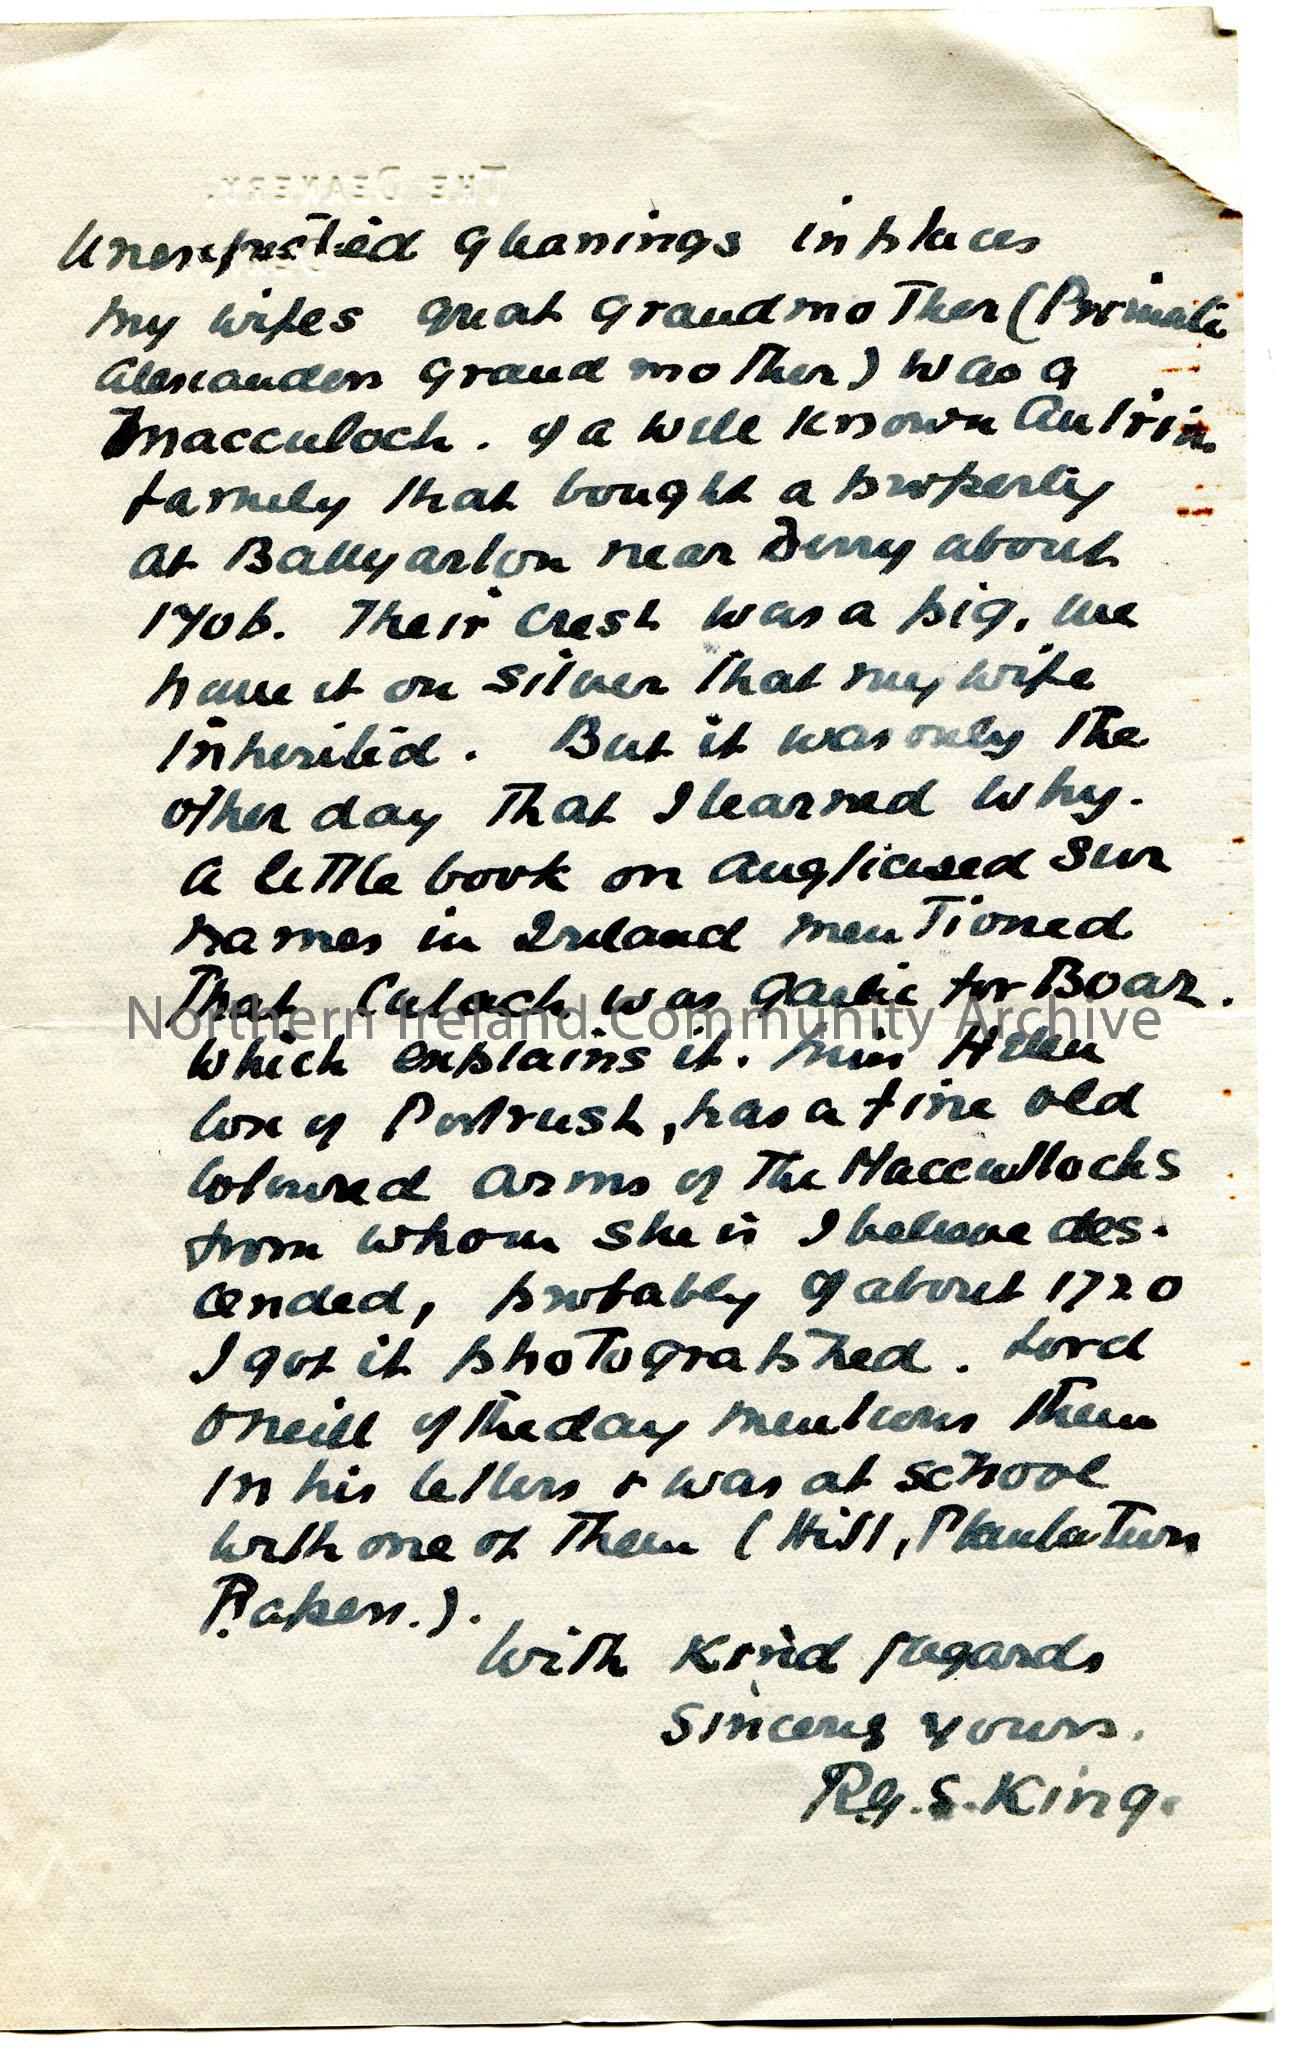 THE DEANERY.
Unexpected gleanings in places
my wifes great grandmother (Primate
Alexanders grand mother) was a
Macculoch. of a well known Antrim
family that bought a property
at Ballyarton near Derry about
1706. Their crest was a pig. we
have it on silver that my wife
inherited. But it was only the
other day that I learned why.
A little book on Anglicised Sur
names in Ireland mentioned
That Culoch was Gaelic for Boar.
Northern Ireland Community Archive
which explains it. Miss Helen
of Portrush, has a fine old
Coloured arms of The Maccullochs
from whom she is I believe des-
cended, probably of about 1720
I got it photographed. Lord
Oneill of the day mentions them
in his letters & was at school
with one of Them (Hill, Plantation
Papers.).
With Kind regards
Sincerely yours.
R.G.S.King.